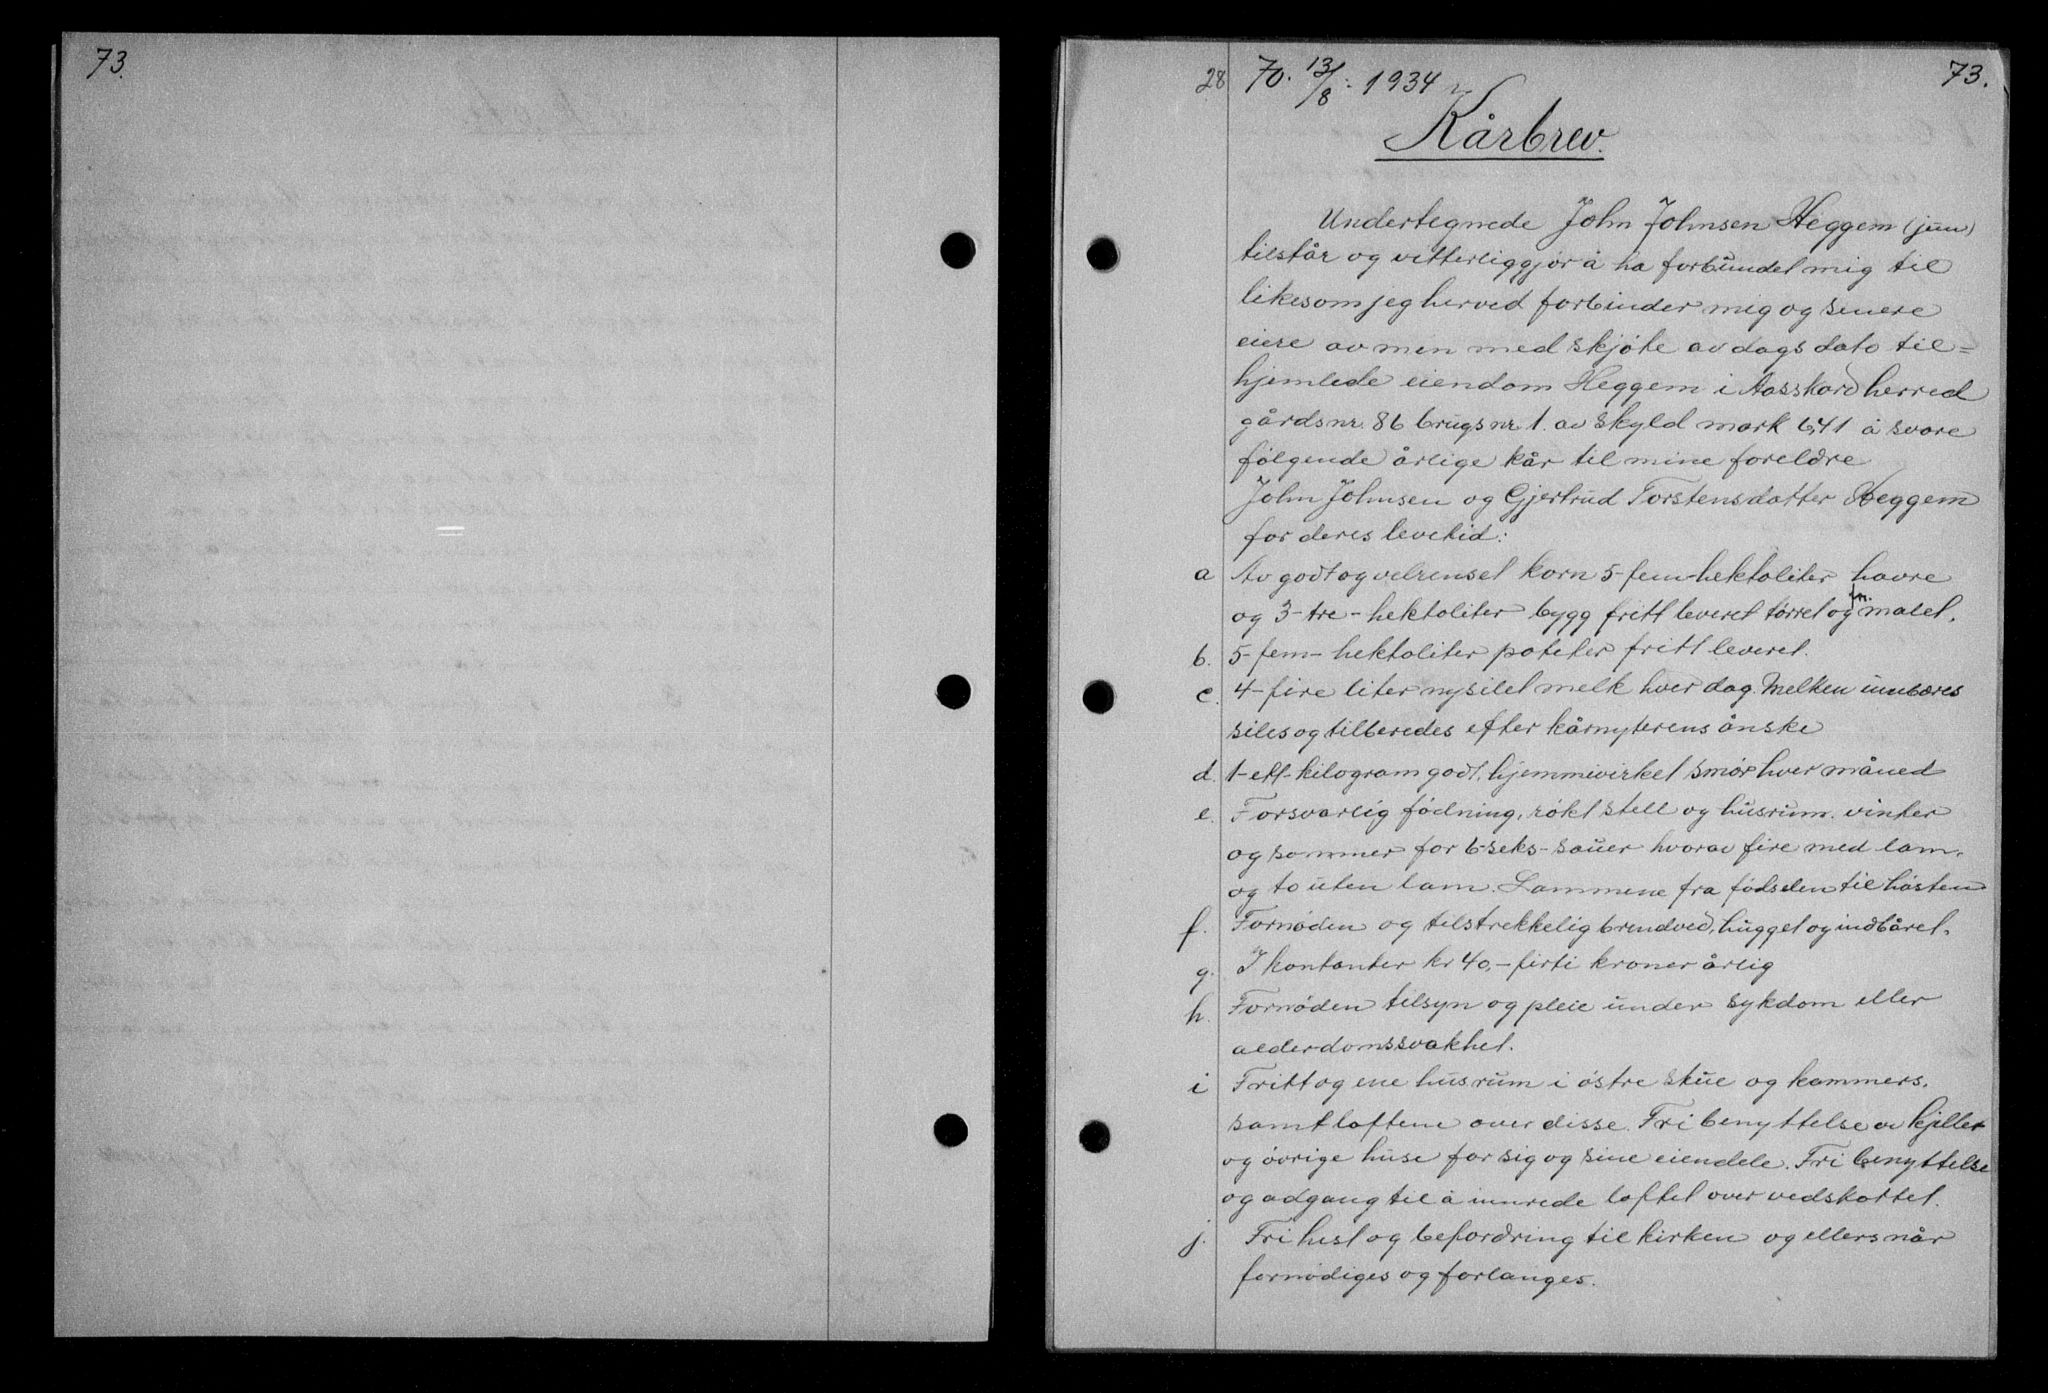 73.
28 70. 13/8. 1934 73.
Kårbrev.
Undertegnede John Johnsen Heggem (jun)
tilstår og vitterliggjør å ha forbundet mig til
likesom jeg herved forbinder mig og senere
eiere av min med skjøte av dags dato til=
hjemlede eiendom Heggem i Aasskard herred
gårdsnr. 86 brugsnr. 1. av skyld mark 6,41 å svare
følgende årlige kår til mine foreldre
John Johnsen og Gjertrud Torstensdatter Heggem
for deres levetid:
a Av godt og velrenset korn 5-fem-hektoliter havre
og 3-tre-hektoliter bygg fritt leveret tørret og malet.
b. 5-fem-hektoliter poteter fritt leveret.
c. 4-fire liter nysilet melk hver dag. Melken innbæres
siles og tilberedes efter kårnyterens ønske
d. 1-ett-kilogram godt, hjemmivirket smør hver måned
e. Forsvarlig fødning, røkt stell og husrum. vinter
og sommer for 6-seks-sauer hvorav fire med lam.
og to uten lam. Lammene fra fødselen til høsten
f. Fornøden og tilstrekkelig brendved, hugget og indbåret.
g. I kontanter kr 40,- førti kroner årlig
h. Fornøden tilsyn og pleie under sykdom eller
alderdomssvakhet.
i Fritt og ene husrum i østre stue og kammers.
samt loftene over disse. Fri benyttelse av kjeller
og øvrige huse for sig og sine eiendele. Fri benyttelse
og adgang til å innrede loftet over vedskottet.
j. Fri hest og befordring til kirken og ellers når
fornødiges og forlanges.